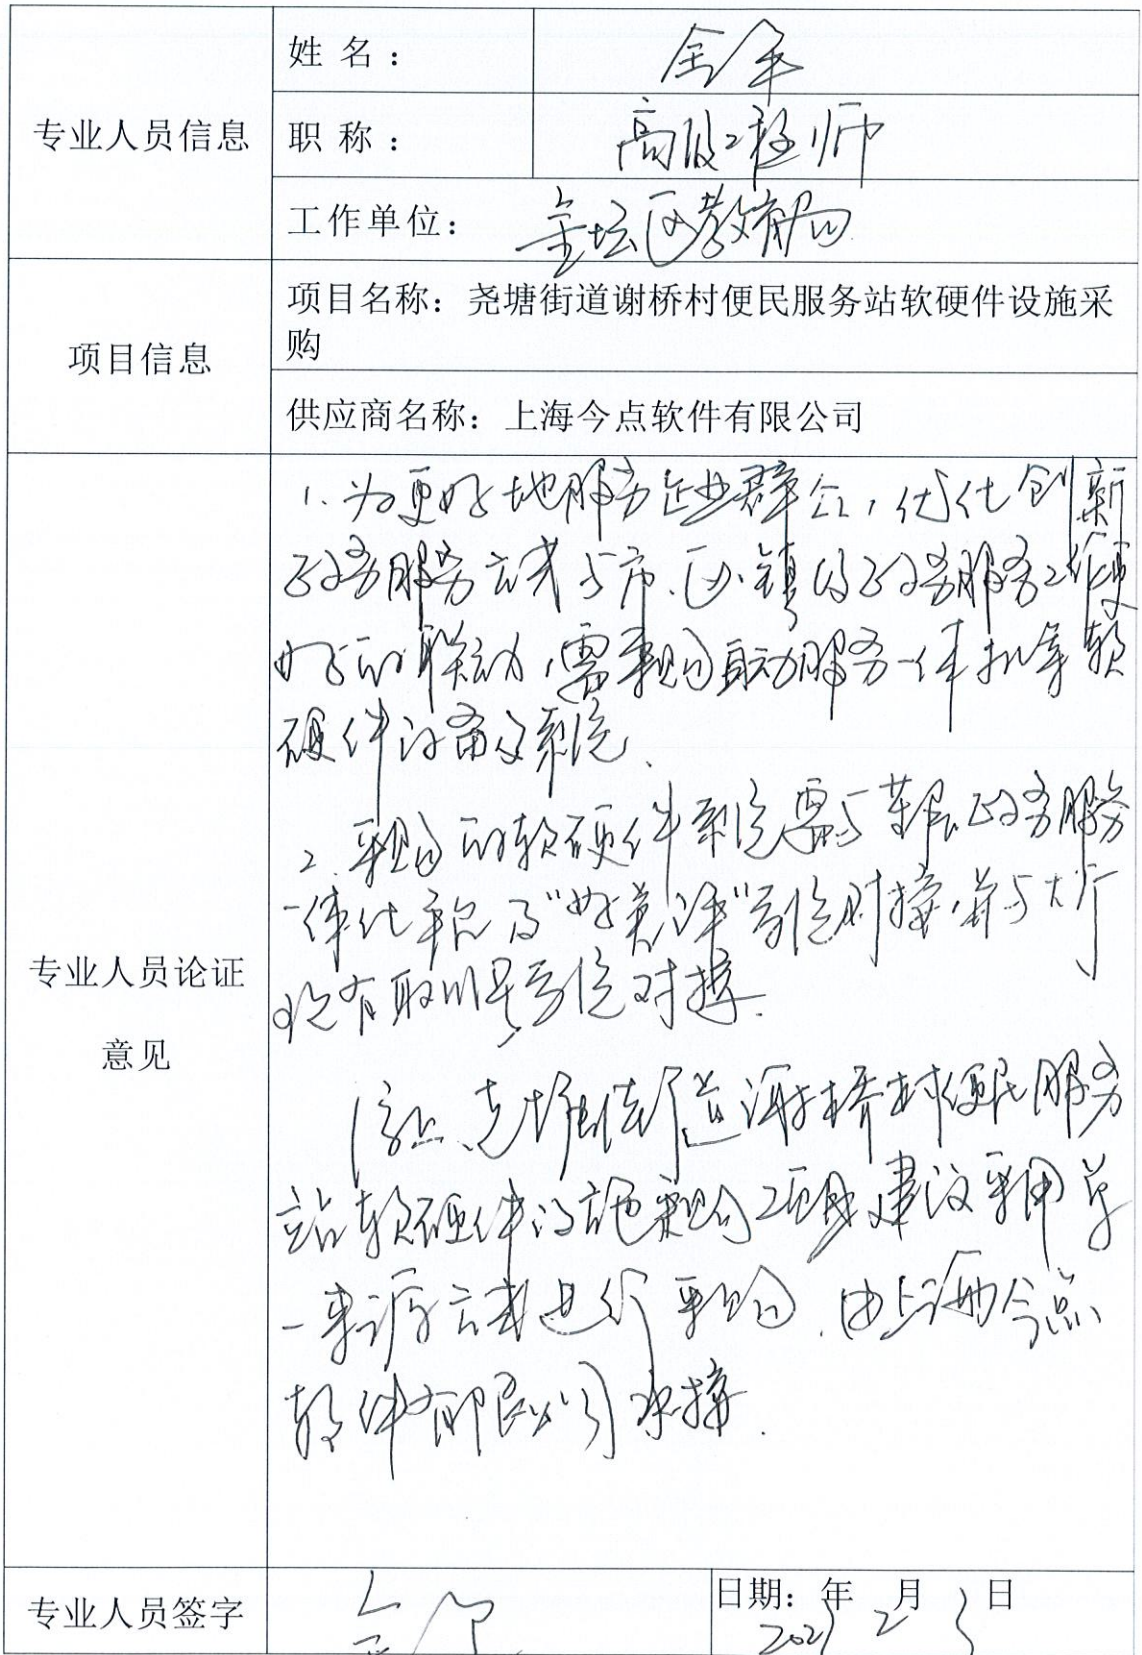 专业人员信息
姓 名：
职 称： 高级工程师
工作单位： 金坛区教育局
项目信息
项目名称：尧塘街道谢桥村便民服务站软硬件设施采
购
供应商名称：上海今点软件有限公司
专业人员论证
意见
1、为更好地服务企业群众，优化创新
政务服务方式与市、区、镇的政务服务工作更
好的联动，需采购自动服务一体机等软
硬件设备及系统。
2、采购的软硬件系统需与 政务服务
一体化平台及“好 ”系统对接，并与大厅
现有取叫号系统对接.
综上、尧塘街道谢桥村便民服务
站软硬件设施采购项目建议采用单
一来源方式进行采购，由上海今点
软件有限公司承接.
专业人员签字
日期： 年 月 日
2 3